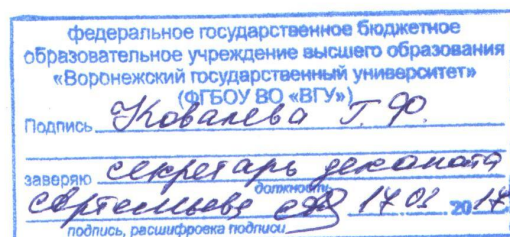 федеральное государственное бюджетное
образовательное учреждение высшего образования
«Воронежский государственный университет»
(ФГБОУ ВО «ВГУ»)
Подпись Ковалева Г. Ф.
заверяю секретарь деканата
должность
17 03 2017
подпись, расшифровка подписи